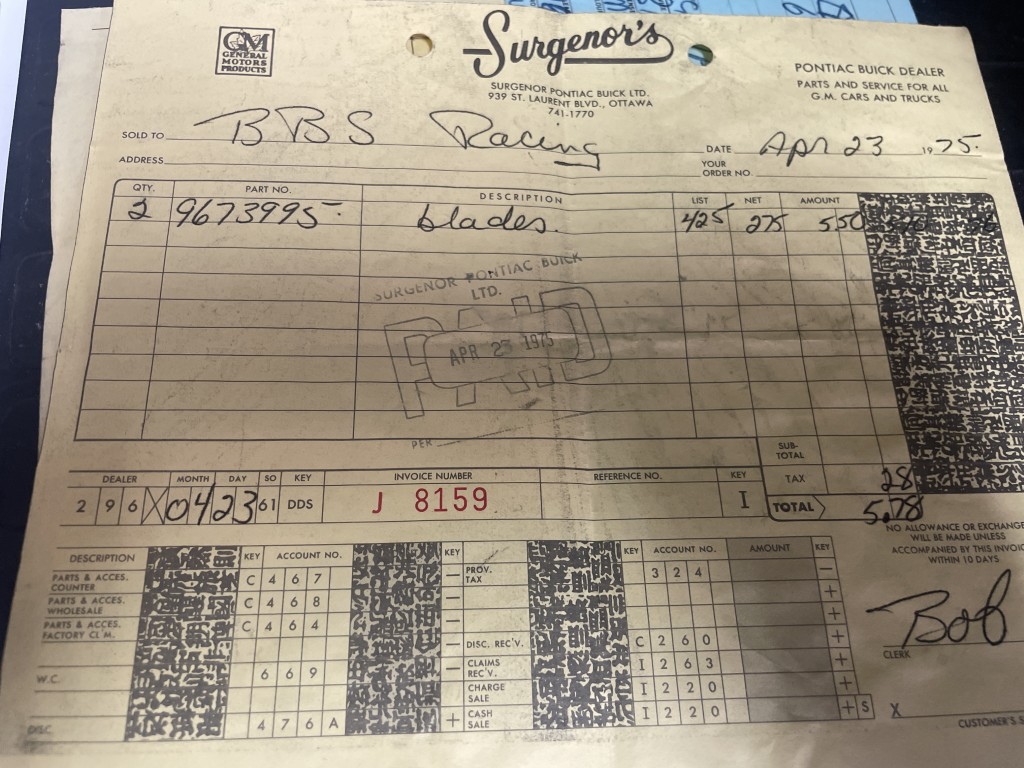 GM
GENERAL
MOTORS
PRODUCTS
Surgenor's
SURGENOR PONTIAC BUICK LTD.
939 ST. LAURENT BLVD., OTTAWA
741-1770
PONTIAC BUICK DEALER
PARTS AND SERVICE FOR ALL
G.M. CARS AND TRUCKS
SOLD TO BBS Racing DATE Apr 23 1975.
ADDRESS YOUR ORDER NO.
QTY. PART NO. DESCRIPTION LIST NET AMOUNT
2 9673995 blades. 425 275 550
SURGENOR PONTIAC BUICK
LTD.
PAID
APR 23 1975
PER
SUB-TOTAL
TAX 28
TOTAL 5.78
DEALER MONTH DAY SO KEY INVOICE NUMBER REFERENCE NO. KEY
2 9 6 X 04 23 61 DDS J 8159 I
NO ALLOWANCE OR EXCHANGE
WILL BE MADE UNLESS
ACCOMPANIED BY THIS INVOIC
WITHIN 10 DAYS
Bob
CLERK
X
CUSTOMER'S S
DESCRIPTION KEY ACCOUNT NO. KEY KEY ACCOUNT NO. AMOUNT KEY
PARTS & ACCES. COUNTER C 4 6 7 — PROV. TAX 3 2 4 —
PARTS & ACCES. WHOLESALE C 4 6 8 — +
PARTS & ACCES. FACTORY CL'M. C 4 6 4 — +
— DISC. REC'V. C 2 6 0 +
W.C. 6 6 9 — CLAIMS REC'V. I 2 6 3 +
CHARGE SALE I 2 2 0 +
DISC. 4 7 6 A + CASH SALE I 2 2 0 + S